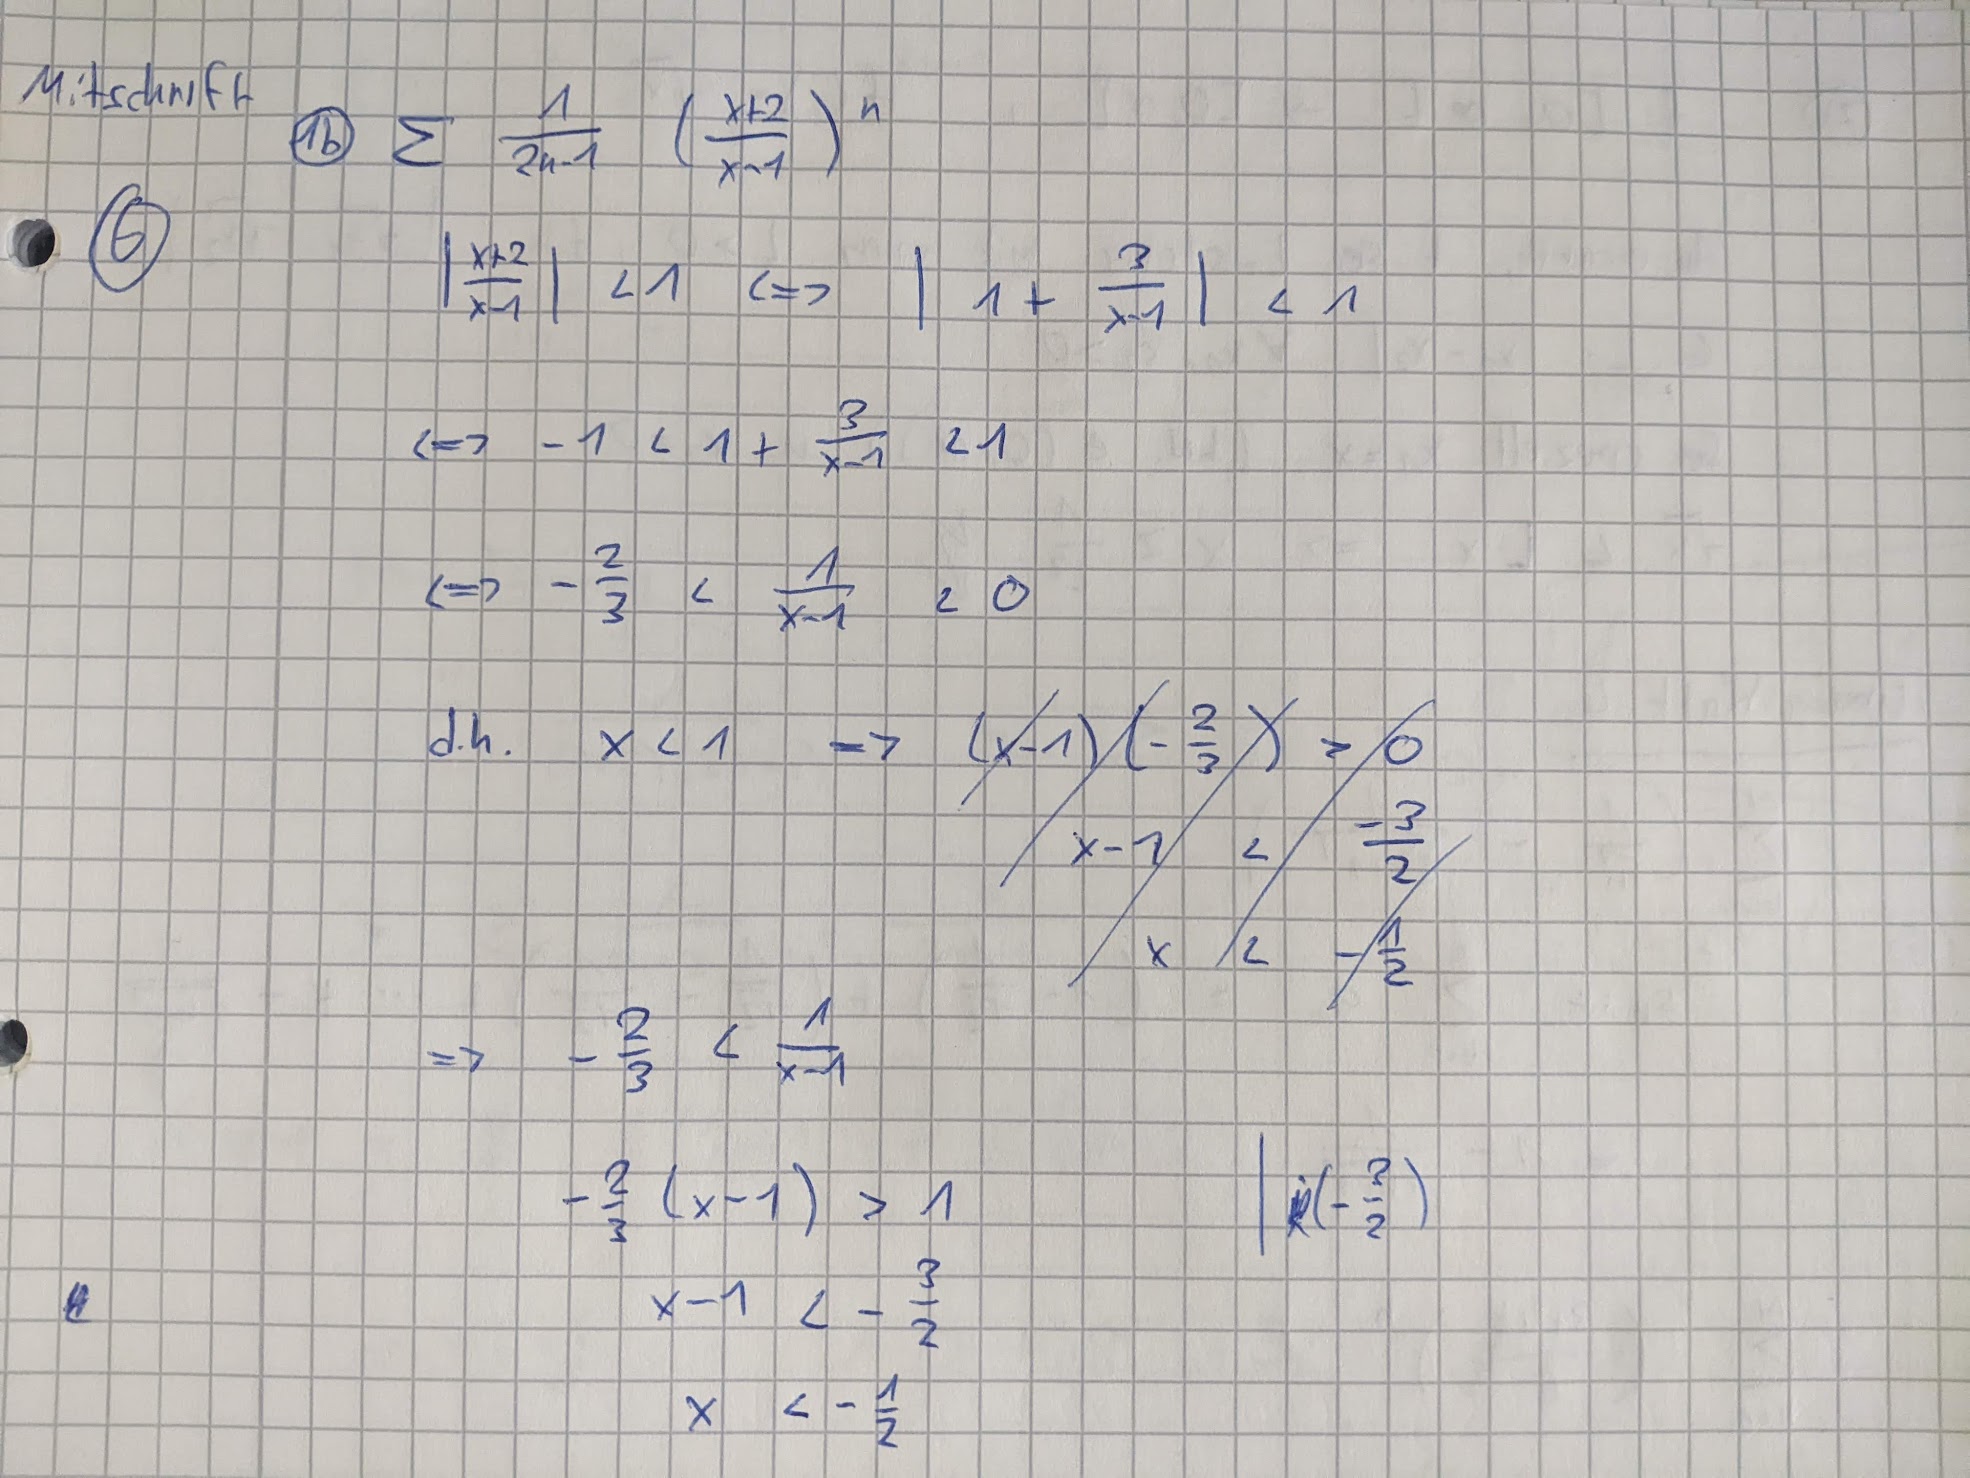 Mitschrift
(1b) Σ 1/(2n-1) ((x+2)/(x-1))^n
6
|(x+2)/(x-1)| < 1 <=> |1 + 3/(x-1)| < 1
<=> -1 < 1 + 3/(x-1) < 1
<=> -2/3 < 1/(x-1) < 0
d.h. x < 1 => (x-1) (-2/3) > 0
x-1 < -3/2
x < -1/2
=> -2/3 < 1/(x-1)
-2/3 (x-1) > 1 | (-3/2)
x-1 < -3/2
x < -1/2